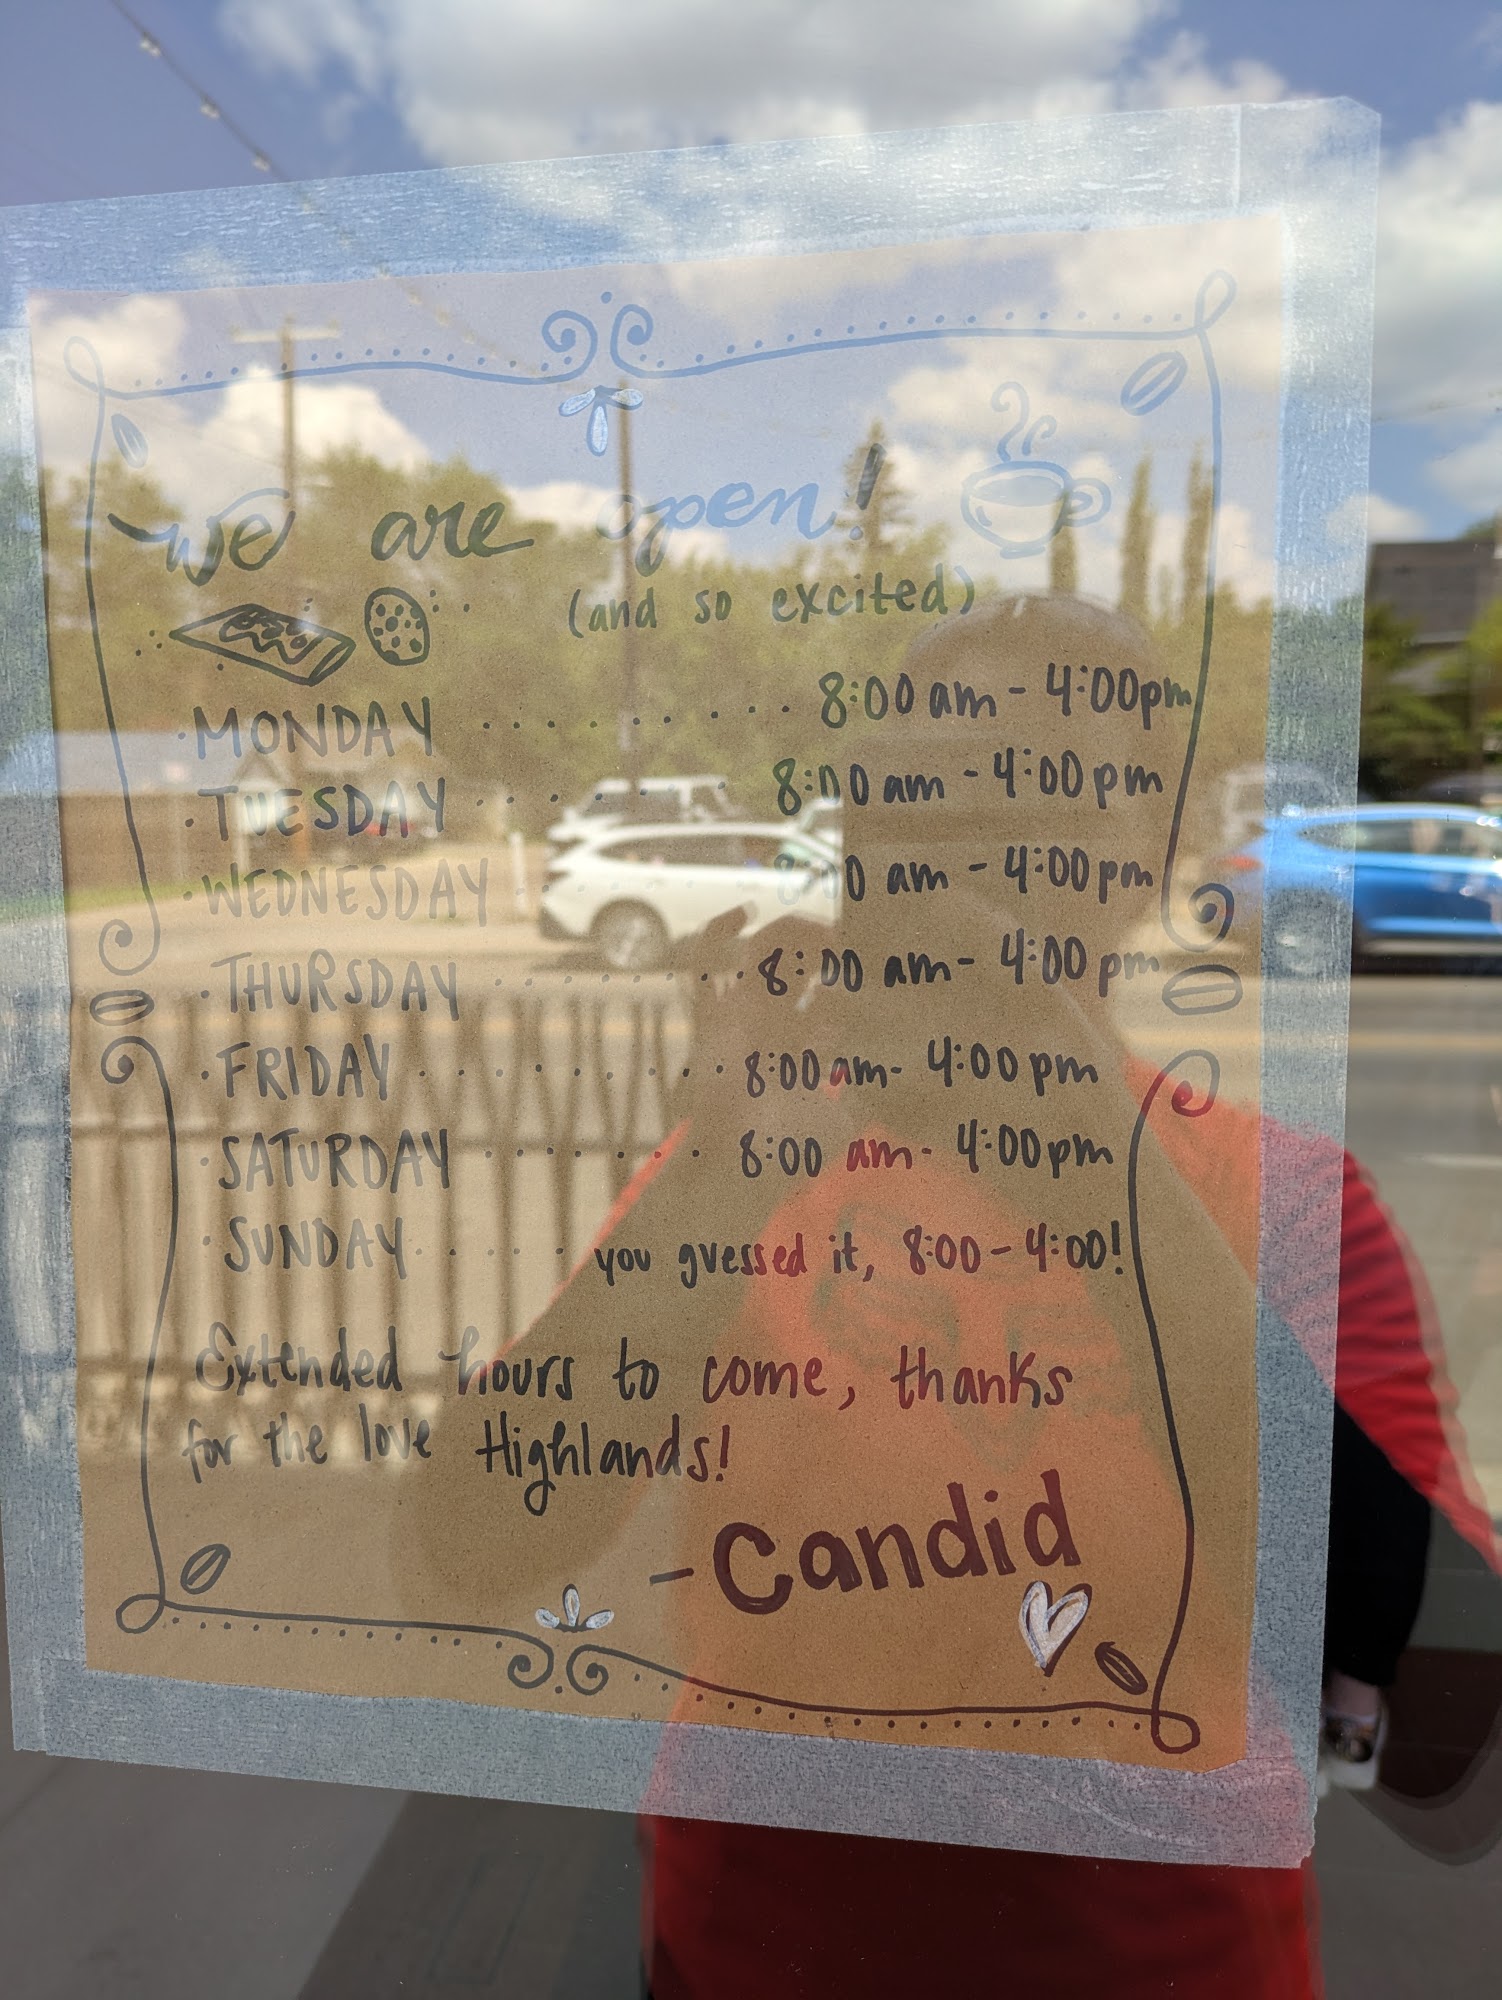 we are open!
(and so excited)
· MONDAY .......... 8:00 am - 4:00pm
· TUESDAY ........ 8:00 am - 4:00 pm
· WEDNESDAY ....... 8:00 am - 4:00 pm
· THURSDAY ........ 8:00 am - 4:00 pm
· FRIDAY .......... 8:00 am - 4:00 pm
· SATURDAY ....... 8:00 am - 4:00pm
· SUNDAY ..... you guessed it, 8:00 - 4:00!
Extended hours to come, thanks
for the love Highlands!
- Candid